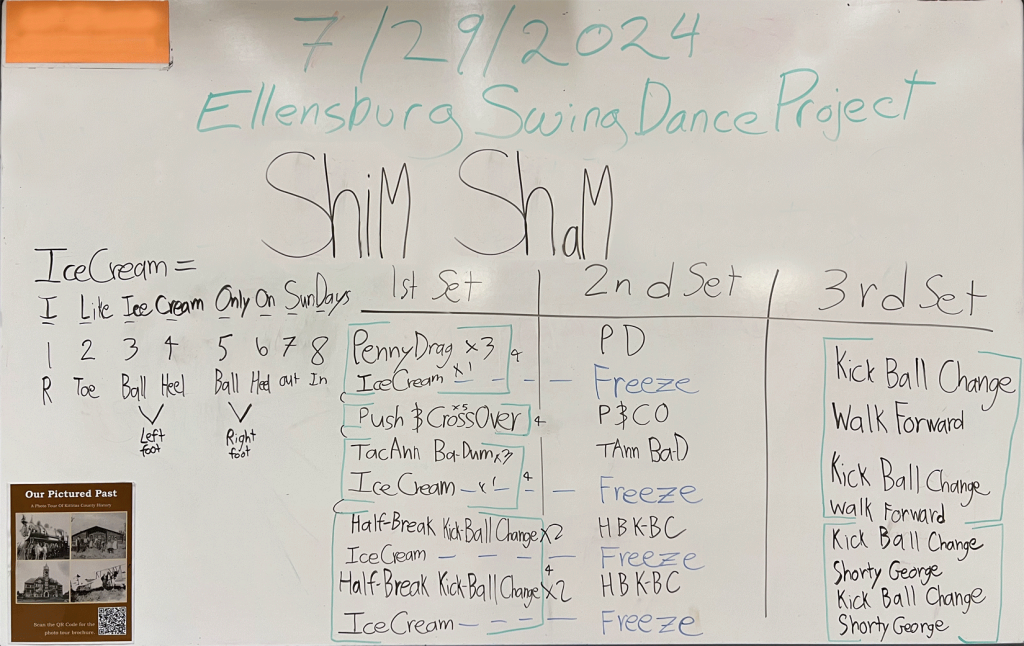 7/29/2024
Ellensburg Swing Dance Project
ShiM ShaM
IceCream =
I Like Ice Cream Only On SunDays
1 2 3 4 5 6 7 8
R Toe Ball Heel Ball Heel out In
Left foot
Right foot
1st Set
PennyDrag x3
IceCream x1
4
Push & CrossOver x5
4
TacAnn Ba-Dum x3
IceCream x1
4
Half-Break Kick-Ball Change x2
IceCream
4
Half-Break Kick-Ball Change x2
IceCream
2nd Set
PD
Freeze
P&CO
TAnn Ba-D
Freeze
HBK-BC
Freeze
HBK-BC
Freeze
3rd Set
Kick Ball Change
Walk Forward
Kick Ball Change
Walk Forward
Kick Ball Change
Shorty George
Kick Ball Change
Shorty George
Our Pictured Past
A Photo Tour Of Kittitas County History
Scan the QR Code for the
photo tour brochure.